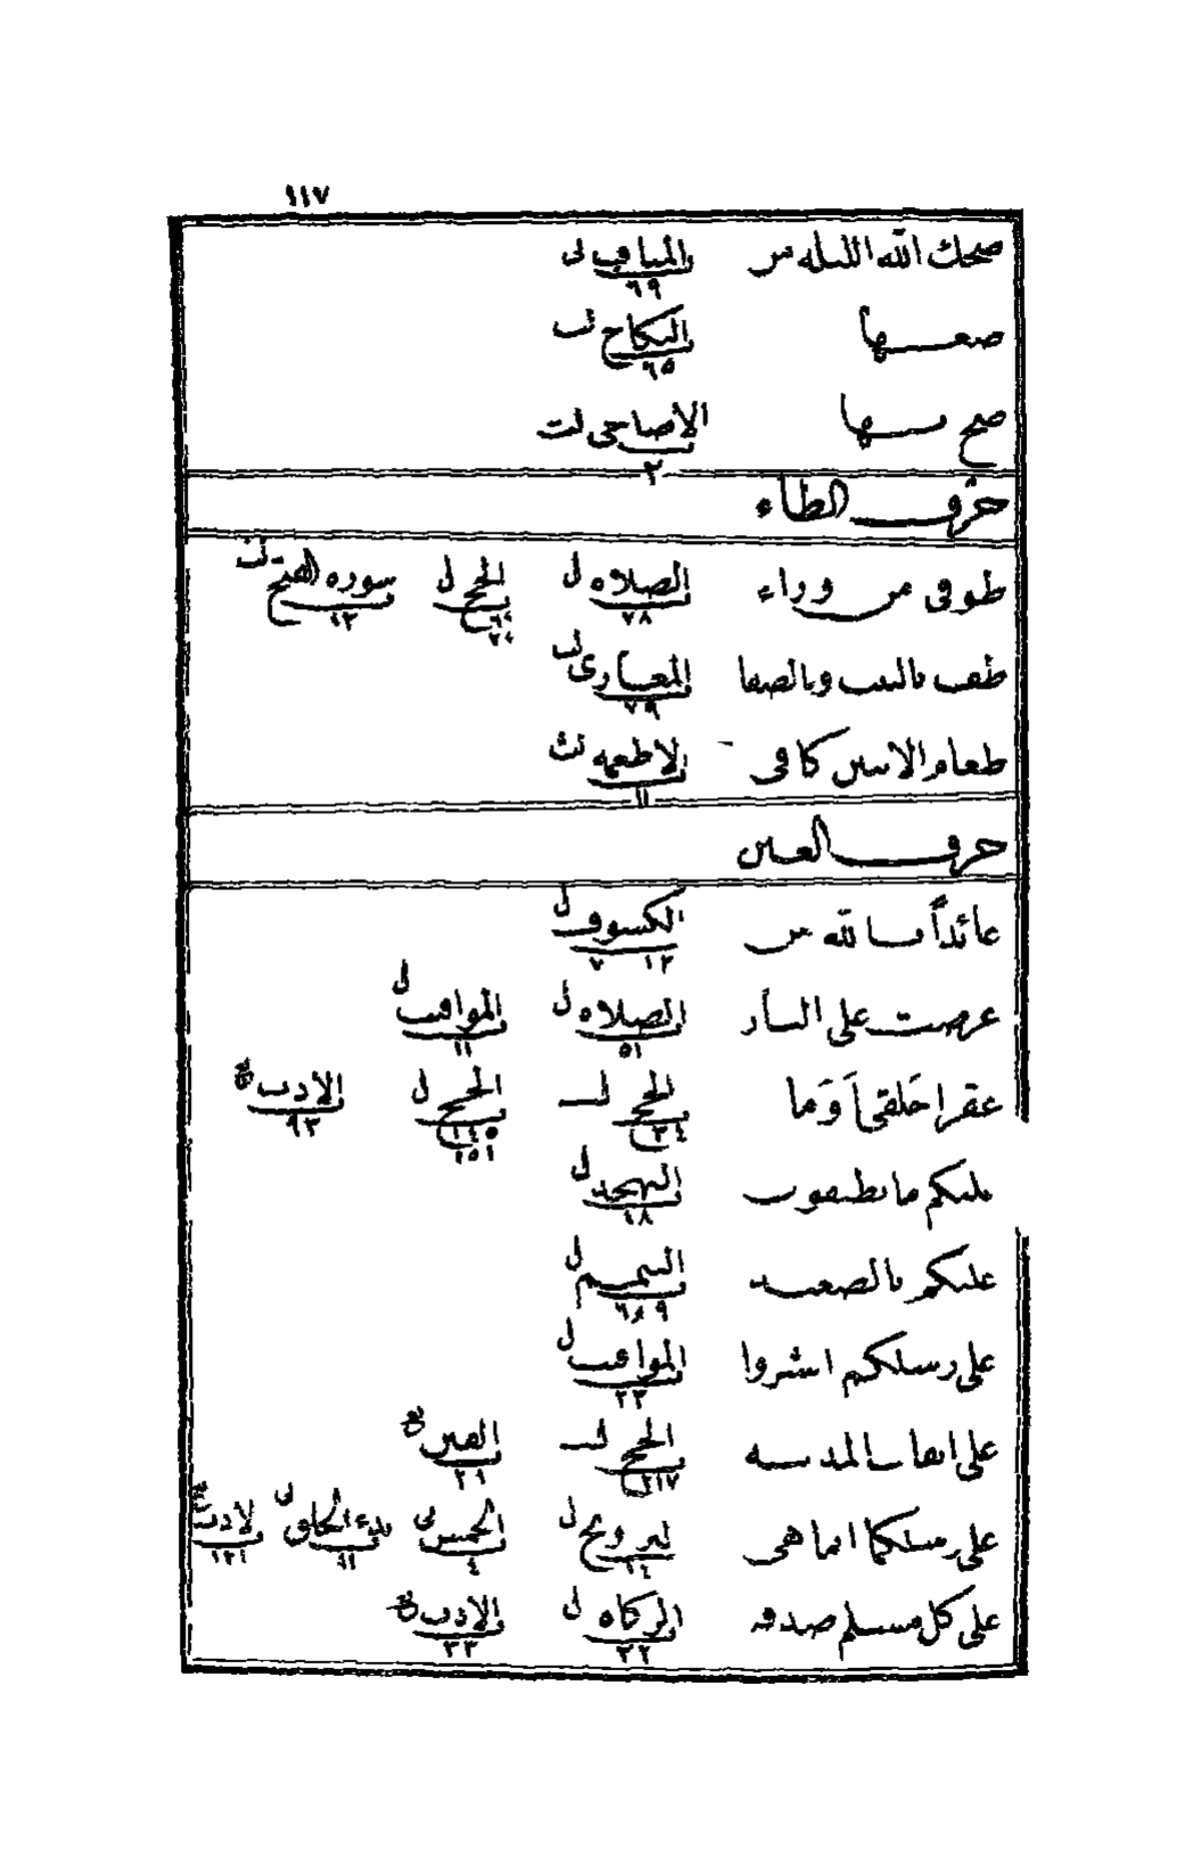 ١١٧
ضحك الله الليله من المناقب ل ٦٩
ضعها النكاح ٦٥
ضح بها الاضاحى ٢
حرف الطاء
طوفى من وراء الصلاه ل ٧٨ الحج ل ٦٤ ٧٤ سوره الفتح ١٣
طف بالبيت وبالصفا المغازى ٧٩
طعام الاثنين كافى الاطعمه ١١
حرف العين
عائذاً بالله من الكسوف ل ٧ ١٢
عرضت على النار الصلاه ل ٥١ المواقيت ل ١١
عقرا حَلقىاَ وَما الحج ٣٤ الحج ل ١٤٥ ١٥١ الادب ٩٣
عليكم ما تطيقون التهجد ل ١٨
عليكم بالصعيد التيمم ل ٦ و ٩
على رسلكم ابشروا المواقيت ل ٢٢
على انقاب المدينه الحج ٢١٧ الفتن ٢٦
على رسلكما انما هى الخمس ٤ بدء الخلق ١١ الادب ١٢١
على كل مسلم صدقه الزكاه ل ٣٢ الادب ٣٣